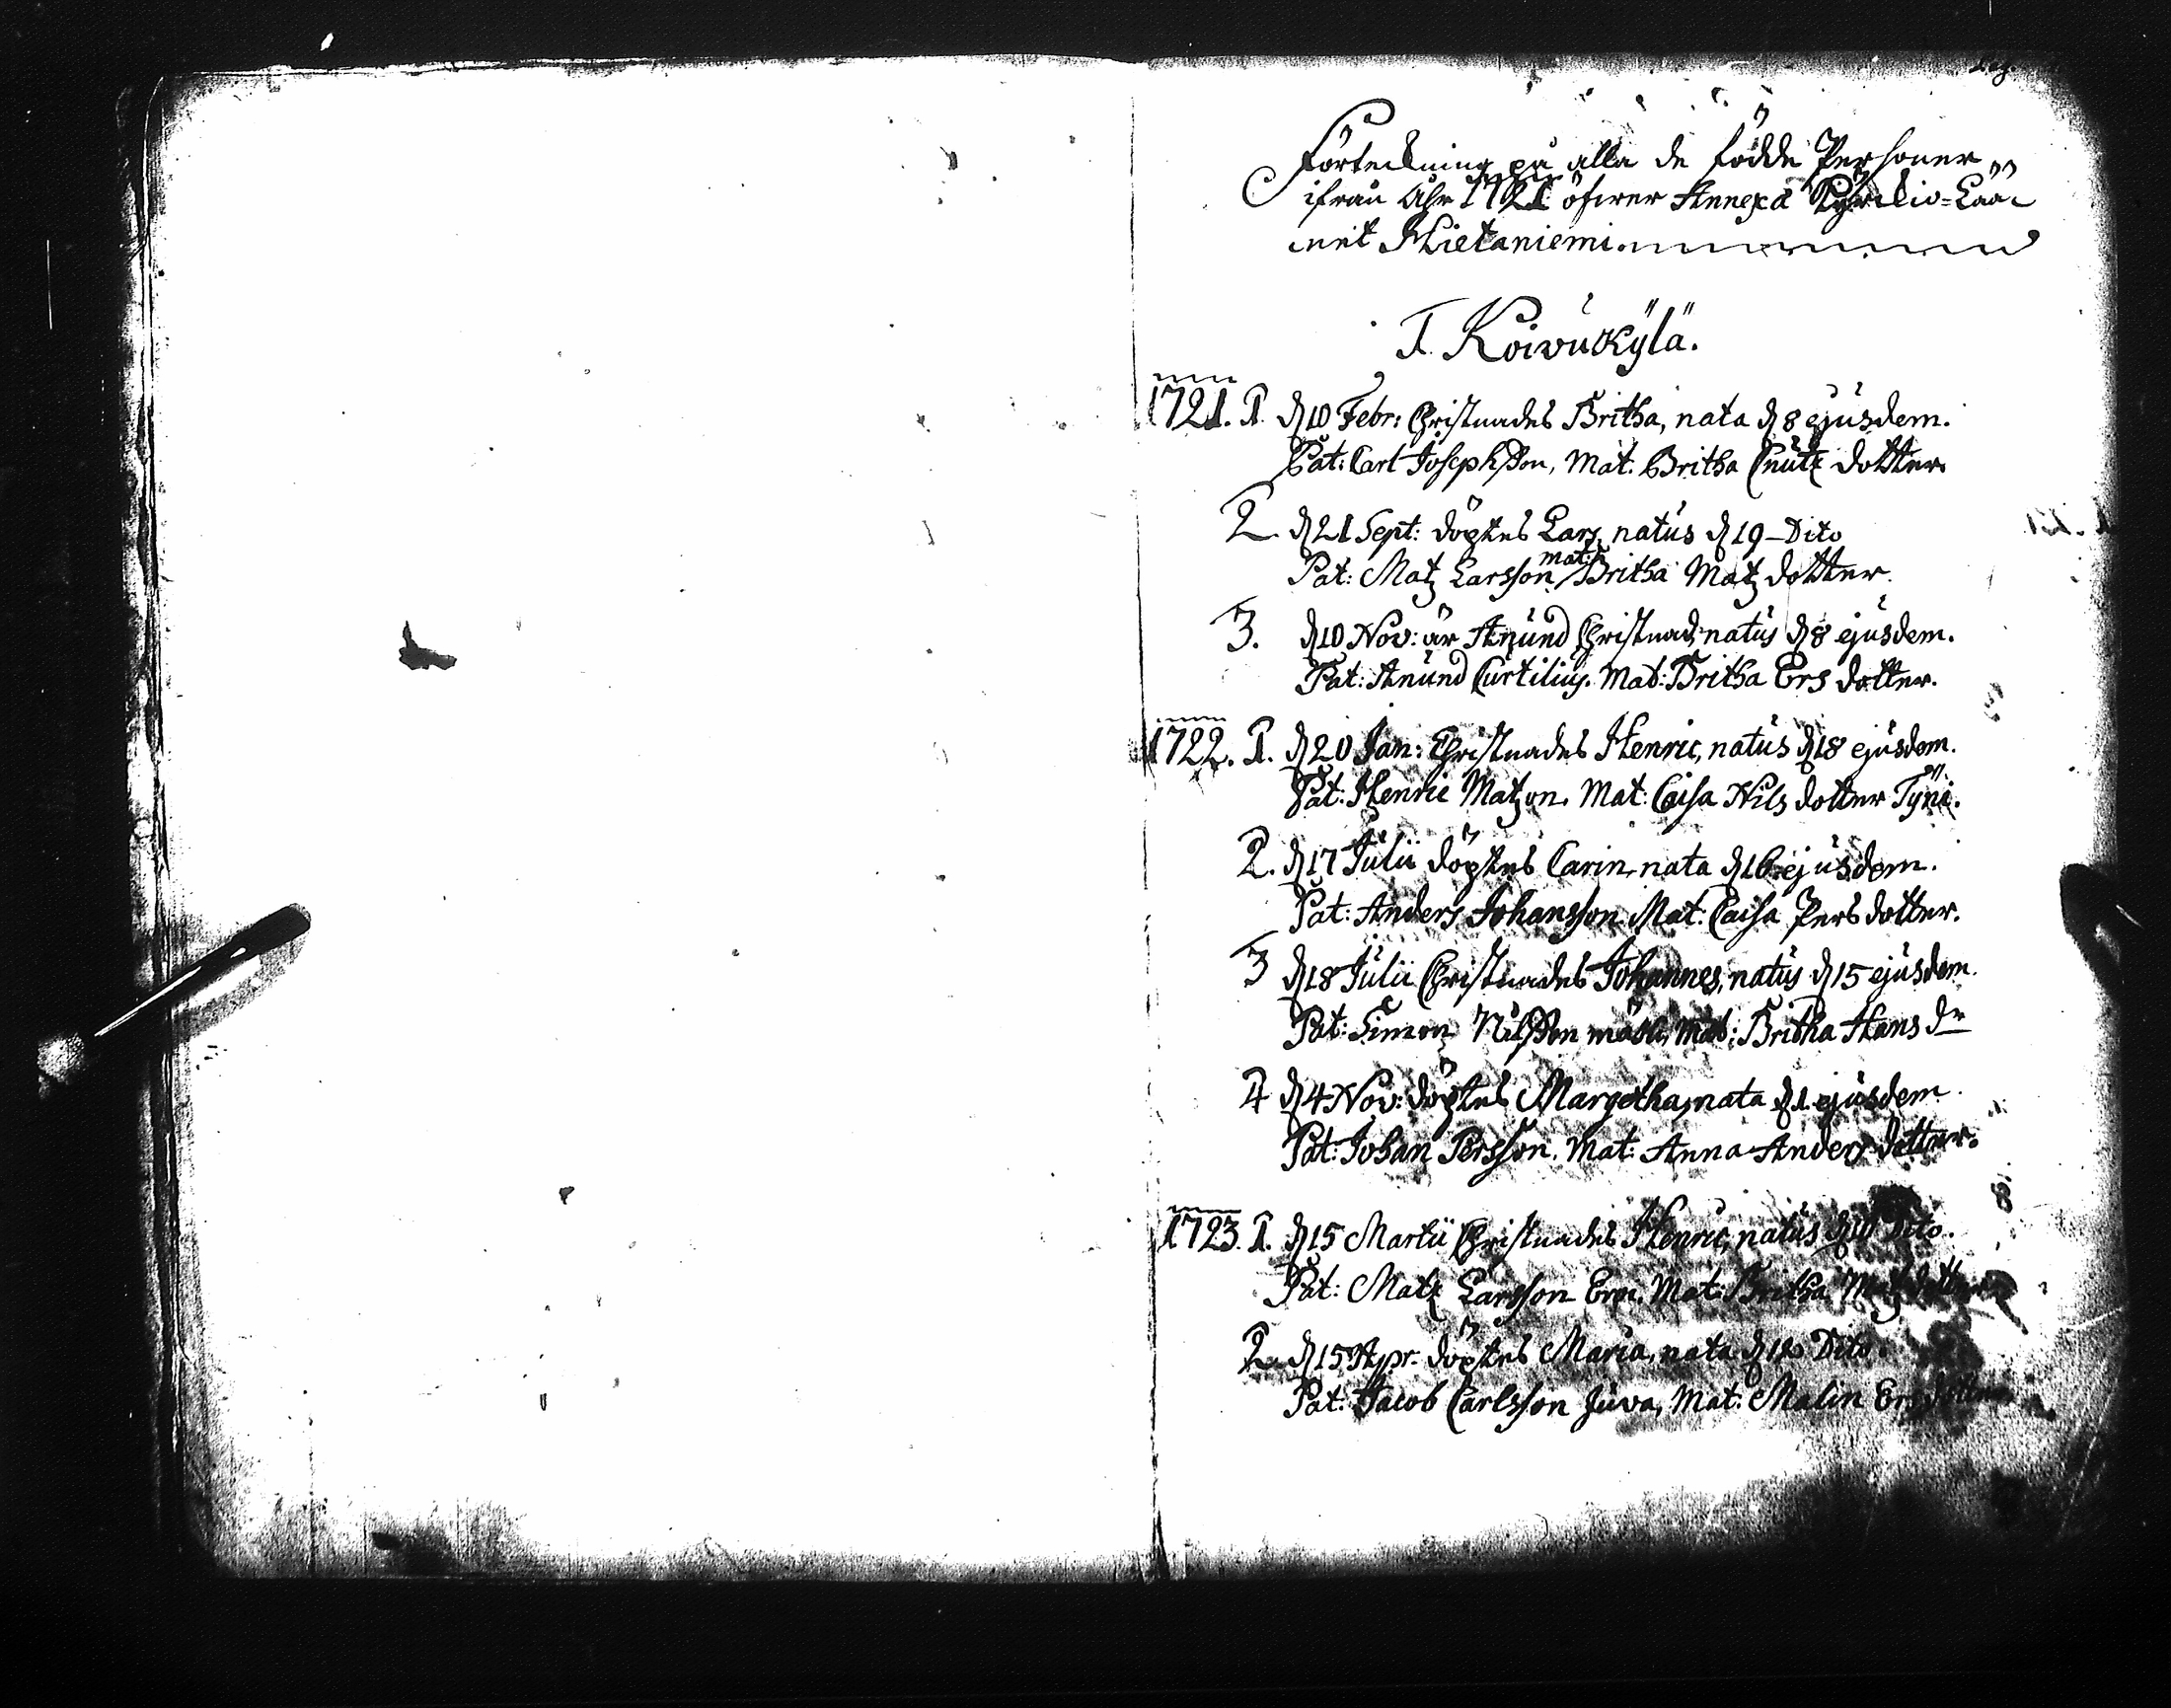 Förteckning på alla de födde Personer
ifrån Åhr 1721 öfwer Annexa Kyrckio=Låå-
net Hietaniemi.
I. Koivukylä.
1721. 1. d 10 Febr: Christnades Britha, nata d 8 ejusdem.
Pat: Carl Josephsson, Mat: Britha Cnutz dotter.
2 d 21 Sept: döptes Lars, natus d 19 Dito
Pat: Matz Larsson, mat: Britha Matz dotter.
3. d 10 Nov: är Anund Christnad, natus d 8 ejusdem.
Pat: Anund Curtilius. Mat: Britha Ers dotter.
1722. 1. d 20 Jan: Christnades Henric, natus d 18 ejusdem.
Pat: Henric Matzon. Mat: Caisa Nils dotter Tyni.
2. d 17 Julii döptes Carin, nata d 16 ejusdem.
Pat: Anders Johansson. Mat: Caisa Pers dotter.
3 d 18 Julii Christnades Johannes, natus d 15 ejusdem.
Pat: Simon Nilsson Mat: Britha Hans dr
4 d 4 Nov: döptes Margetha, nata d 1 ejusdem.
Pat: Johan Persson. Mat: Anna Anders dotter.
1723. 1. d 15 Martii Christnades Henric, natus d 10 Dito.
Pat: Matz Larsson Mat: Britha Matz dotter
2. d 15 Apr: döptes Maria, nata Dito.
Pat: Jacob Carlsson Juva, Mat: Malin Ers dotter